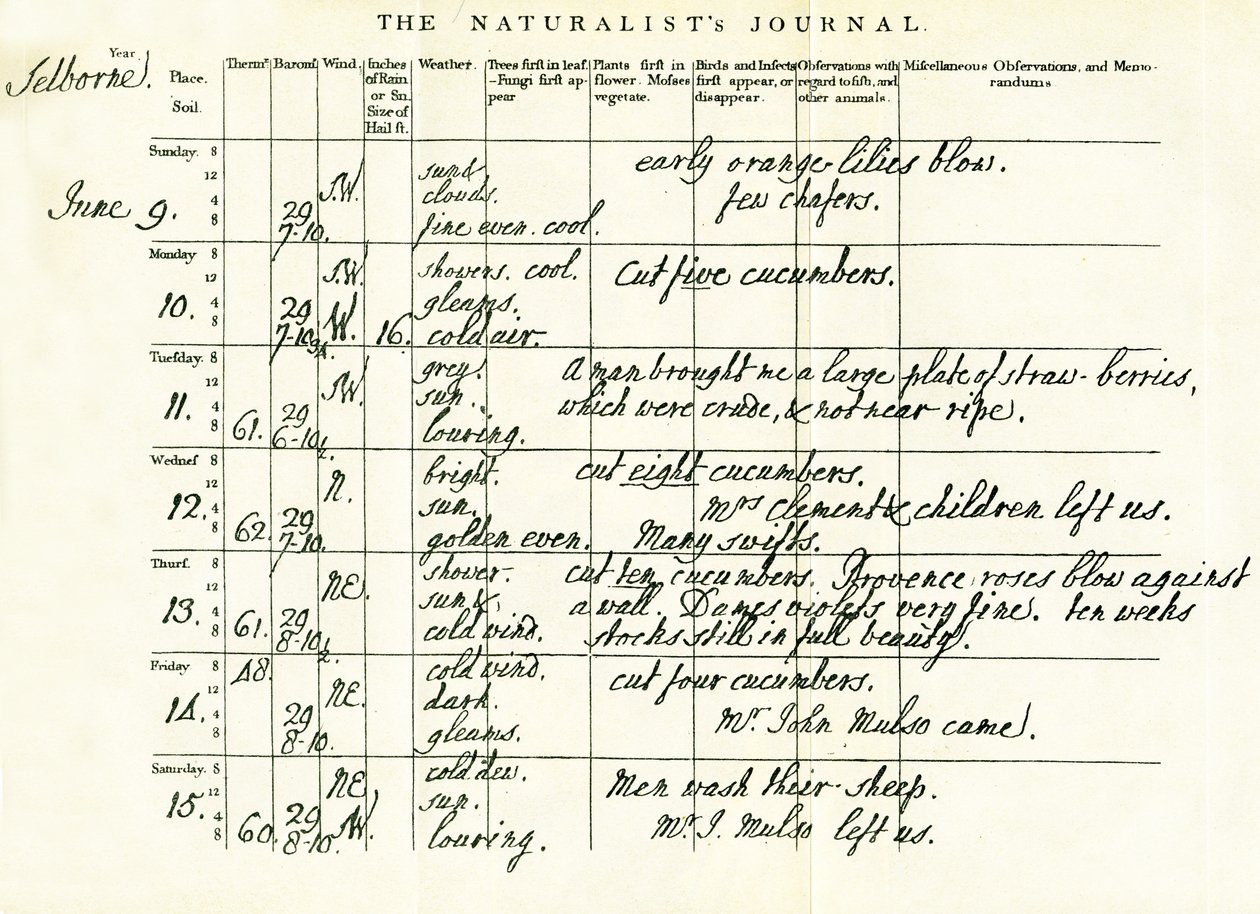 THE NATURALIST's JOURNAL.
Year
Selborne.
Place.
Soil.
Thermr.
Baromr.
Wind.
Inches
of Rain
or Sn.
Size of
Hail ſt.
Weather.
Trees firſt in leaf.
-Fungi firſt ap-
pear
Plants firſt in
flower. Moſses
vegetate.
Birds and Inſects
firſt appear, or
diſappear.
Obſervations with
regard to fiſh, and
other animals.
Miſcellaneous Obſervations, and Memo-
randums
Sunday. 8
12
4
8
June 9.
29
7-10.
S.W.
sun &
clouds.
fine even. cool.
early orange-lilies blow.
few chafers.
Monday 8
12
4
8
10.
29
7-10 3/4.
S.W.
W.
16.
showers. cool.
gleams.
cold air.
Cut five cucumbers.
Tueſday. 8
12
4
8
11.
61.
29
6-10 1/2.
S.W.
grey.
sun.
louring.
A man brought me a large plate of straw-berries,
which were crude, & not near ripe.
Wedneſ 8
12
4
8
12.
62.
29
7-10.
N.
bright.
sun.
golden even.
cut eight cucumbers.
Mrs Clement & children left us.
Many swifts.
Thurſ. 8
12
4
8
13.
61.
29
8-10 1/2.
NE.
shower.
sun &.
cold wind.
cut ten cucumbers. Provence roses blow against
a wall. Dames violets very fine. ten weeks
stocks still in full beauty.
Friday 8
12
4
8
14.
48.
29
8-10.
NE.
cold wind.
dark.
gleams.
cut four cucumbers.
Mr. John Mulso came.
Saturday. 8
12
4
8
15.
60.
29
8-10.
NE,
SW.
cold dew.
sun.
louring.
Men wash their sheep.
Mr. J. Mulso left us.